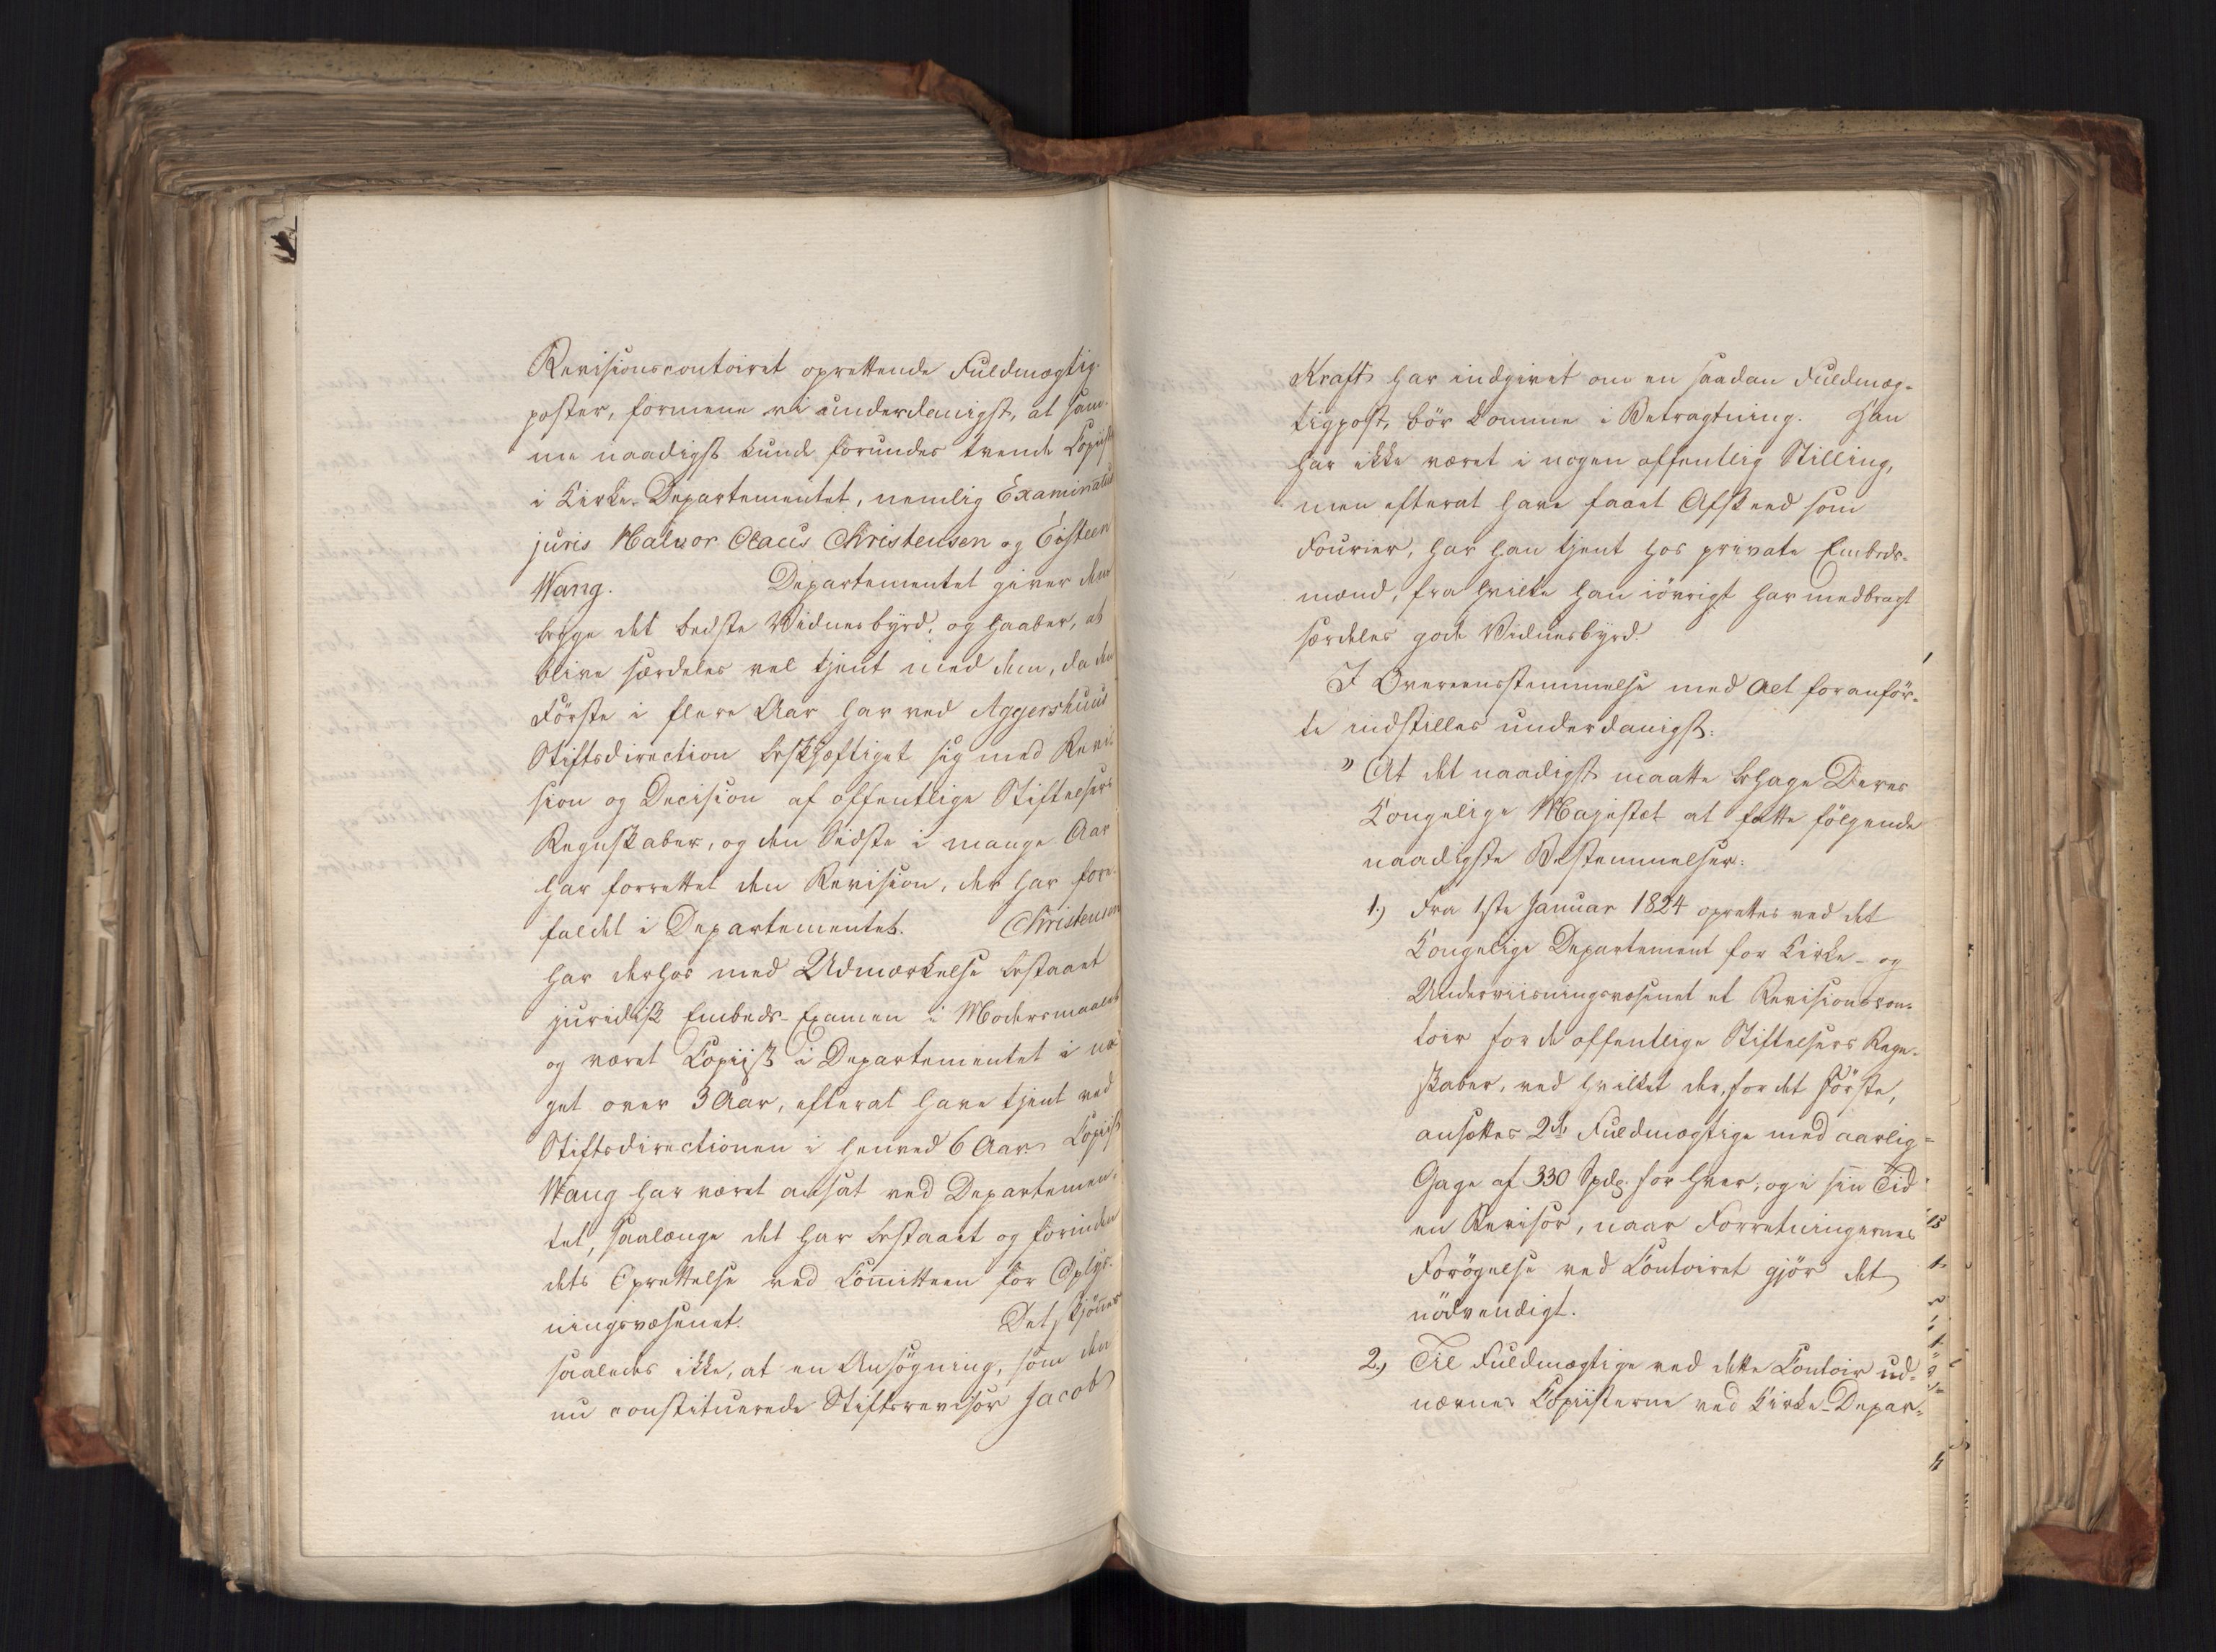 Revisionscontoiret oprettende Fuldmægtig-
poster, formene vi underdanigst, at sam-
me naadigst kunde forundes tvende Copiist
i Kirke-Departementet, nemlig Examinatus
juris Halvor Olaus Christensen og Eösteen
Wang. Departementet giver dem
begge det bedste Vidnesbyrd, og haaber, at
blive særdeles vel tjent med dem, da den
Förste i flere Aar har ved Aggershuus
Stiftsdirection beskjæftiget sig med Revi-
sion og Decision af offentlige Stiftelsers
Regnskaber, og den Sidste i mange Aar
har forrettet den Revision, der har fore-
faldt i Departementet. Christensen
har derhos med Udmærkelse bestaaet
juridisk Embeds-Examen i Modersmaalet
og været Copiist i Departementet i no-
get over 3 Aar, efterat have tjent ved
Stiftsdirectionen i henved 6 Aar. Copiist
Wang har været ansat ved Departemen-
tet, saalænge det har bestaaet og forinden
dets Oprettelse ved Comitteen for Oplys-
ningsvæsenet. Det skjönnes
saaledes ikke, at en Ansögning, som den
nu constituerede Stiftsrevisor Jacob
Kraft har indgivet om en saadan Fuldmæg-
tigpost, bör komme i Betragtning. Han
har ikke været i nogen offentlig Stilling,
men efterat have faaet Afskeed som
Fourier, har han tjent hos private Embeds-
mænd, fra hvilke han iövrigt har medbragt
særdeles gode Vidnesbyrd.
I Overeensstemmelse med Alt foranför-
te indstilles underdanigst:
" At det naadigst maatte behage Deres
Kongelige Majestæt at fatte fölgende
naadigste Bestemmelser:
1.) Fra 1ste Januar 1824 oprettes ved det
Kongelige Departement for Kirke- og
Underviisningsvæsenet et Revisionscon-
toir for de offentlige Stiftelsers Regn-
skaber, ved hvilket der, for det Förste,
ansættes 2de Fuldmægtige med aarlig
Gage af 330 Spdlr. for hver, og i sin Tid
en Revisor, naar Forretningernes
Forögelse ved Contoiret gjör det
nödvendigt.
2.) Til Fuldmægtige ved dette Contoir ud-
nævnes Copiisterne ved Kirke-Depar-